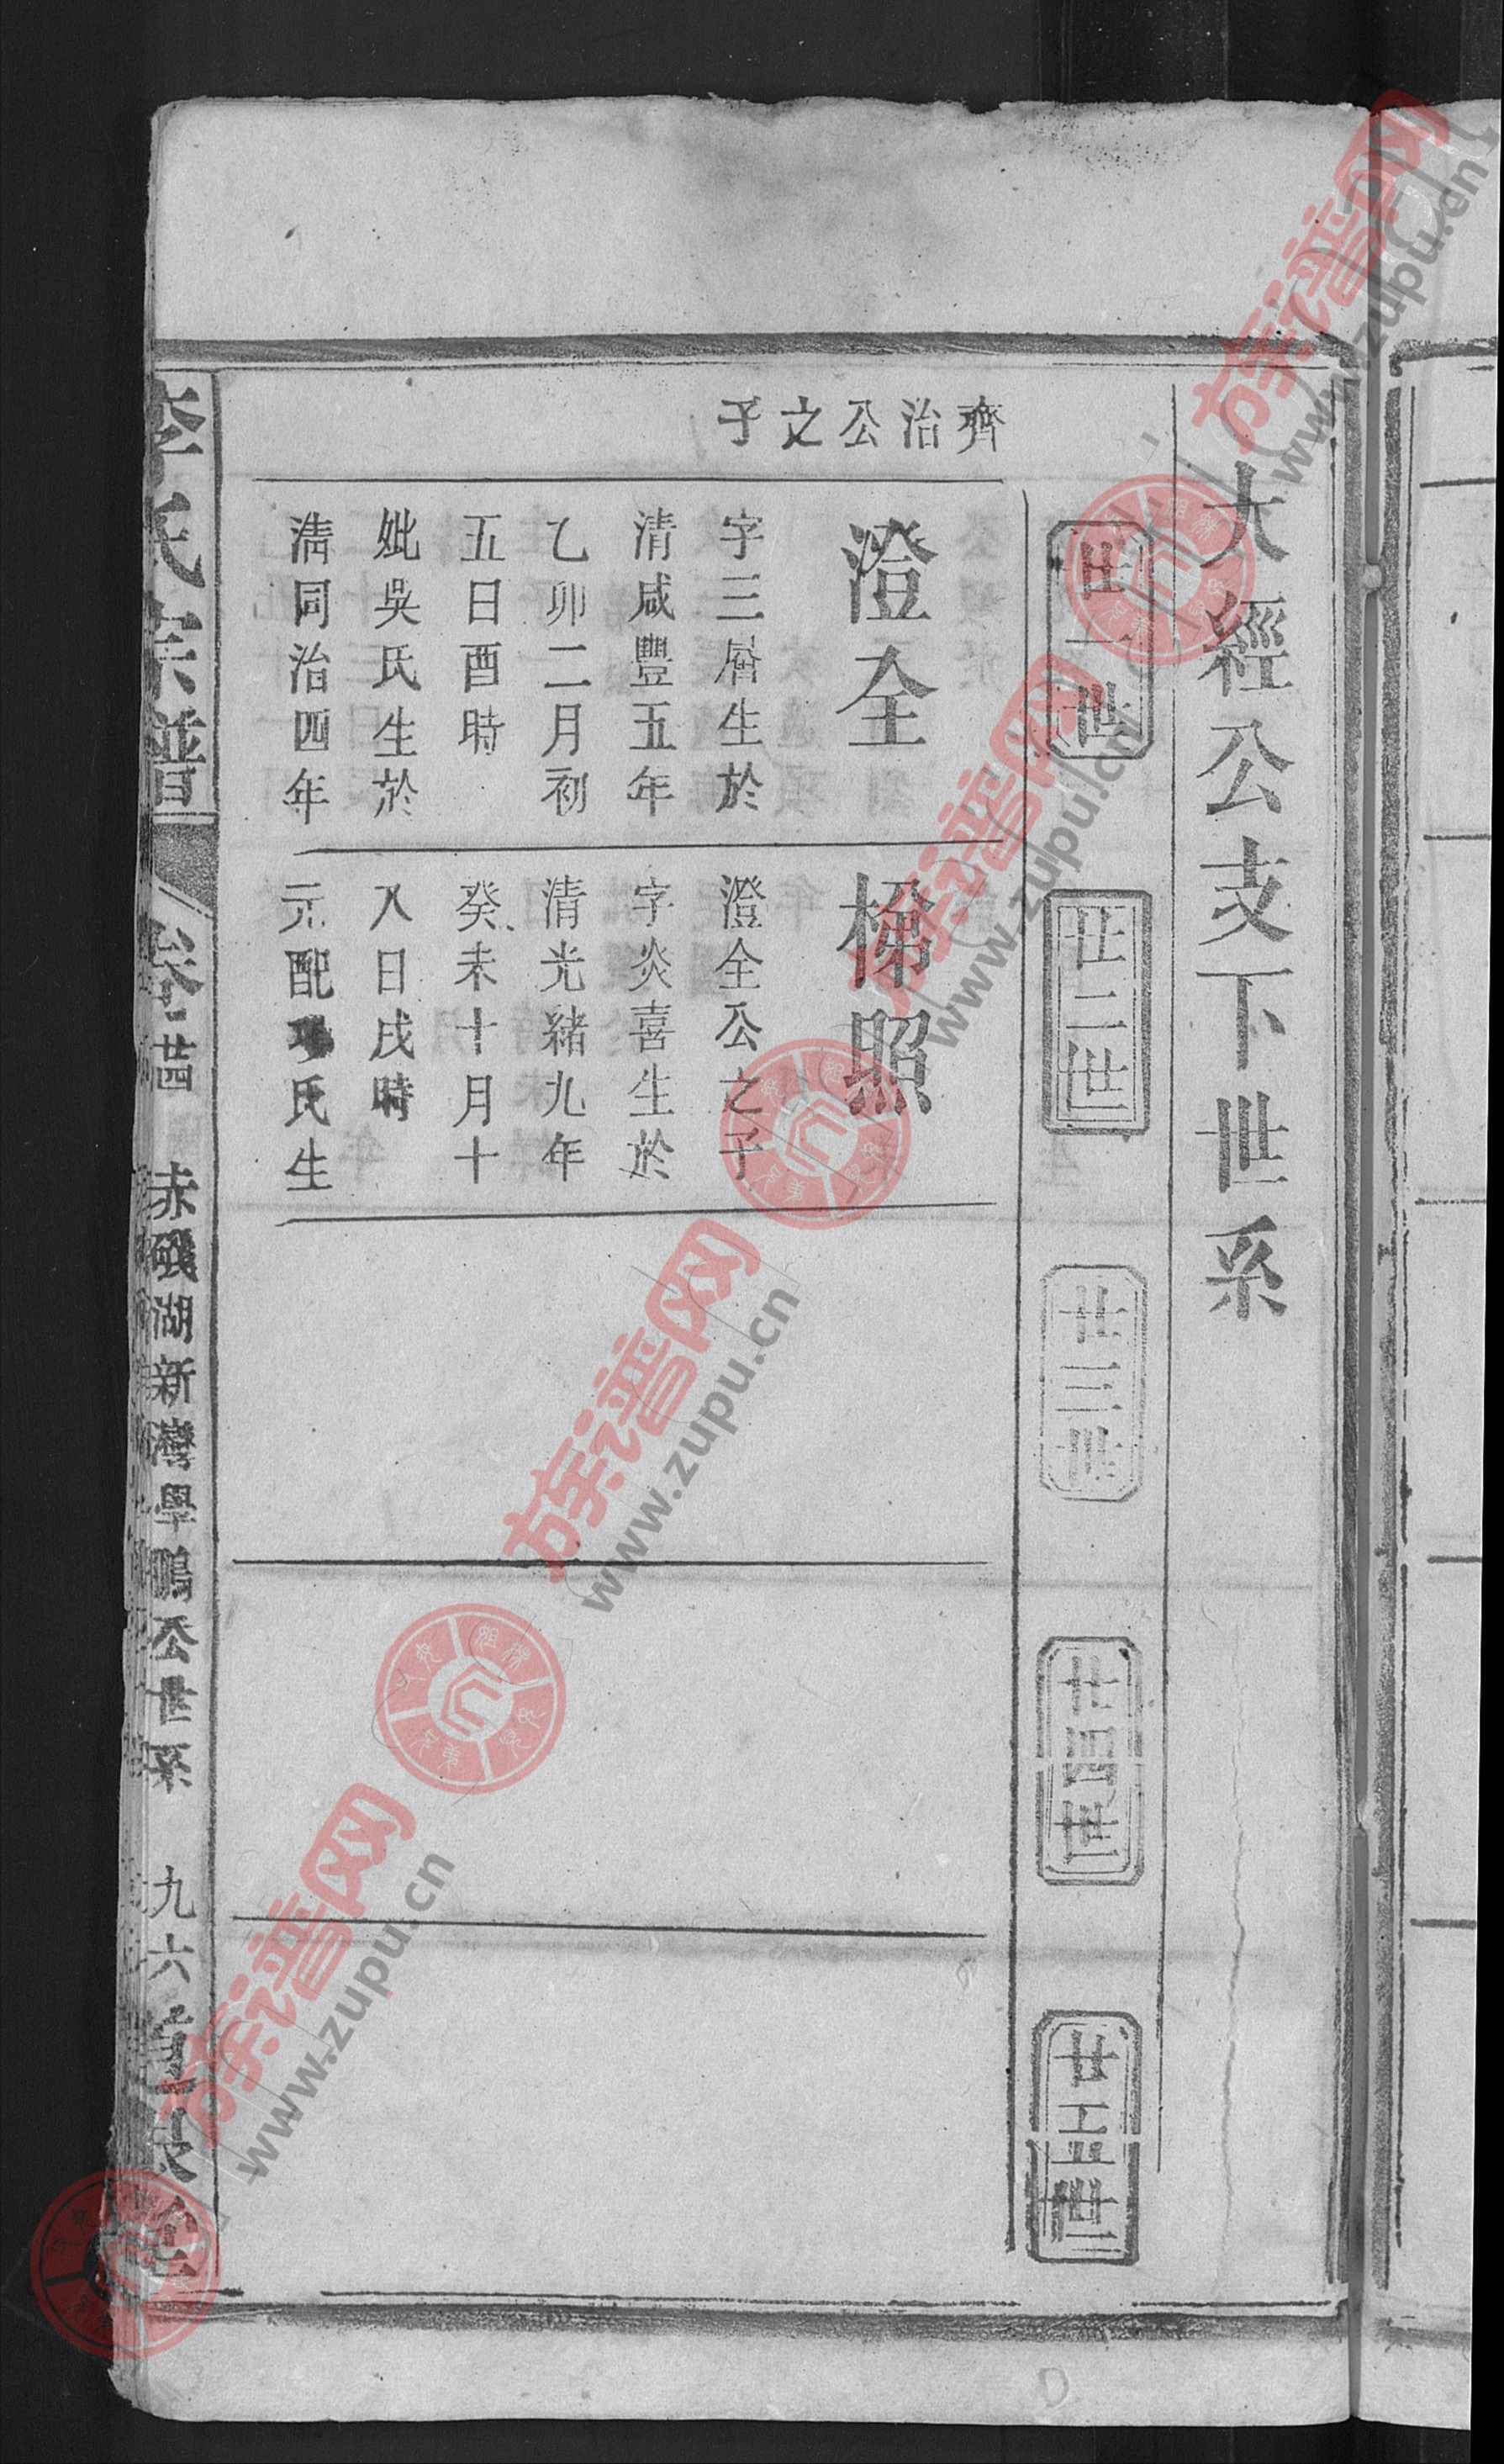 大經公支下世系
廿一世
廿二世
廿三世
廿四世
廿五世
齊治公之子
澄全
字三層生於
清咸豐五年
乙卯二月初
五日酉時
妣吳氏生於
清同治四年
梯照
澄全公之子
字炎喜生於
清光緒九年
癸未十月十
八日戌時
元配 氏生
李氏宗譜
卷廿四
赤磯湖新灣學鵬公世系
九六
族谱网
www.zupu.cn
族谱网
www.zupu.cn
族谱网
www.zupu.cn
族谱网
www.zupu.cn